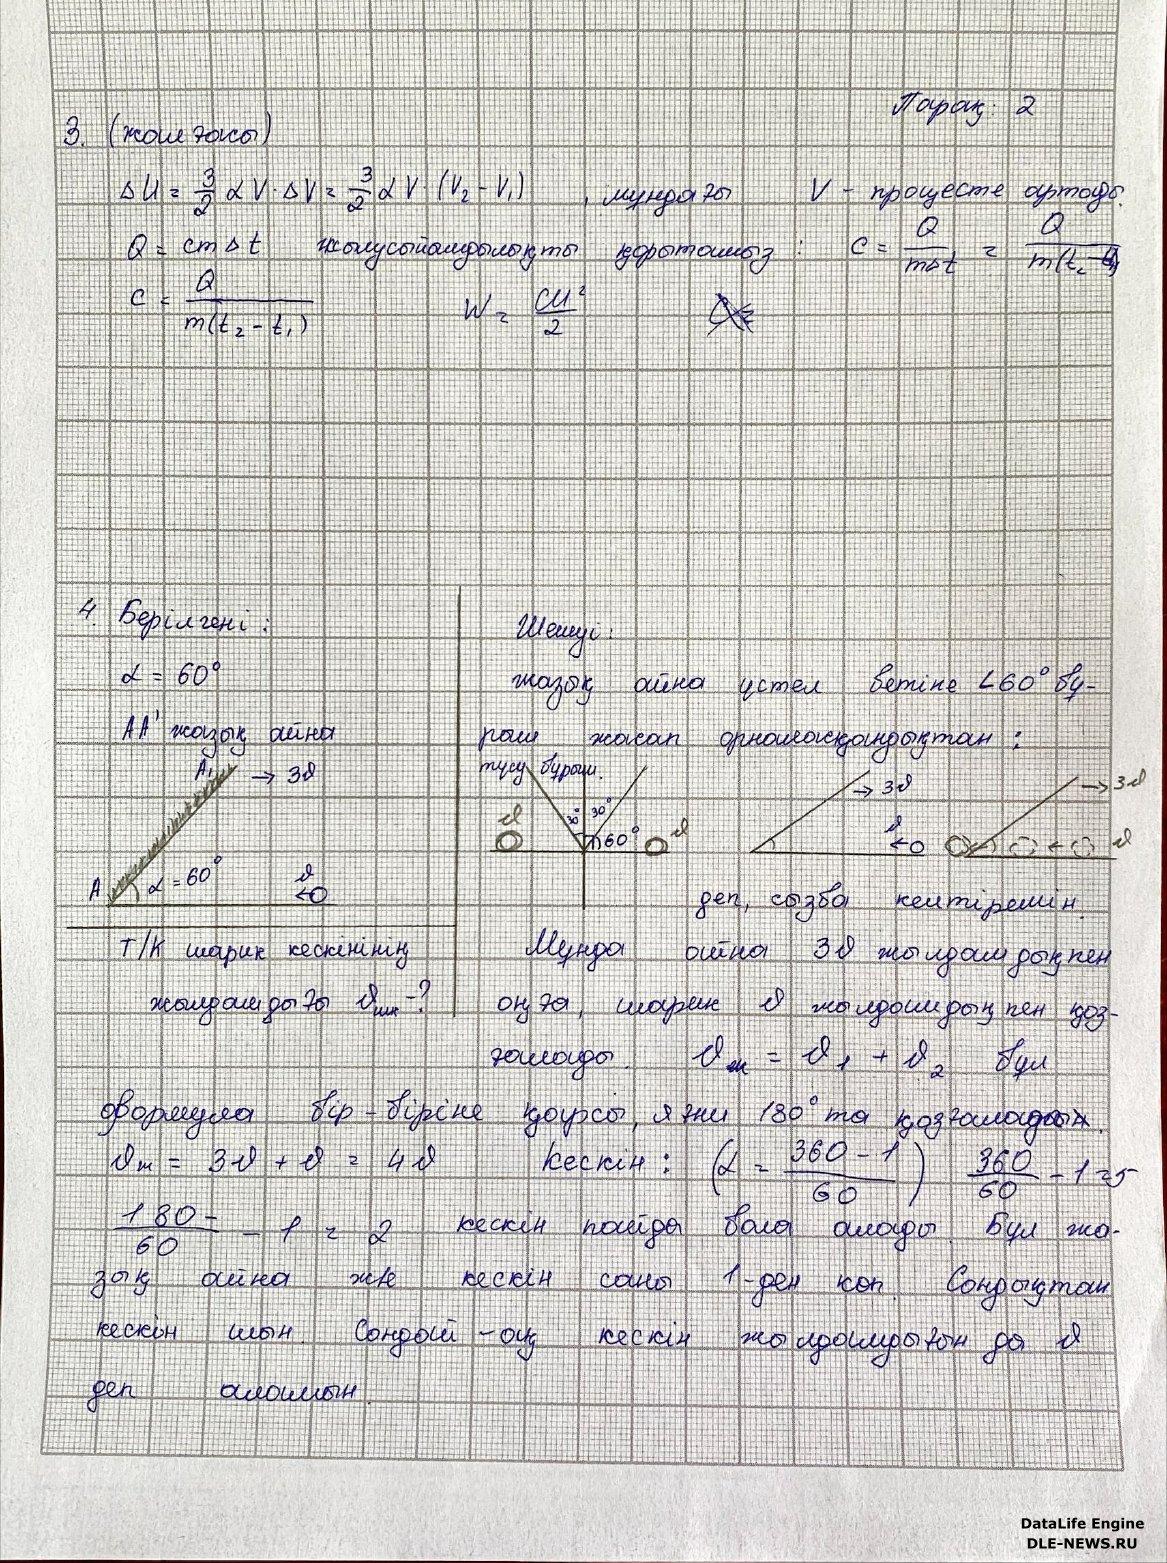 Парақ: 2
3. (жалғасы)
ΔU = 3/2 αV·ΔV = 3/2 αV·(V₂ - V₁), мұндағы V - процесте артады.
Q = cmΔt жылусыйымдылықты қорытамыз: c = Q/mΔt = Q/m(t₂-t₁)
c = Q/m(t₂ - t₁) W = CU²/2
4. Берілгені:
α = 60°
AA' жазық айна
A₁ → 3ϑ
A α = 60° ϑ ←
Т/К шарик кескінінің
жылдамдығы ϑшк - ?
Шешуі:
жазық айна үстел бетіне ∠60° бұ-
рыш жасап орналасқандықтан:
түсу бұрыш.
ϑ 30° 30° 60° ϑ
→ 3ϑ ϑ ←
→ 3ϑ ← ϑ
деп, сызба келтіремін.
Мұнда айна 3ϑ жылдамдықпен
оңға, шарик ϑ жылдамдықпен қоз-
ғалады. ϑ = ϑ₁ + ϑ₂ бұл
формула бір-біріне қарсы, яғни 180° та қозғалады.
= 3ϑ + ϑ = 4ϑ Кескін: (α = 360 - 1/60) 360/60 - 1 = 5
180/60 - 1 = 2 кескін пайда бола алады. Бұл жа-
зық айна және кескін саны 1-ден көп. Сондықтан
кескін шын. Сондай-ақ кескін жылдамдығын да ϑ
деп аламын.
DataLife Engine
DLE-NEWS.RU